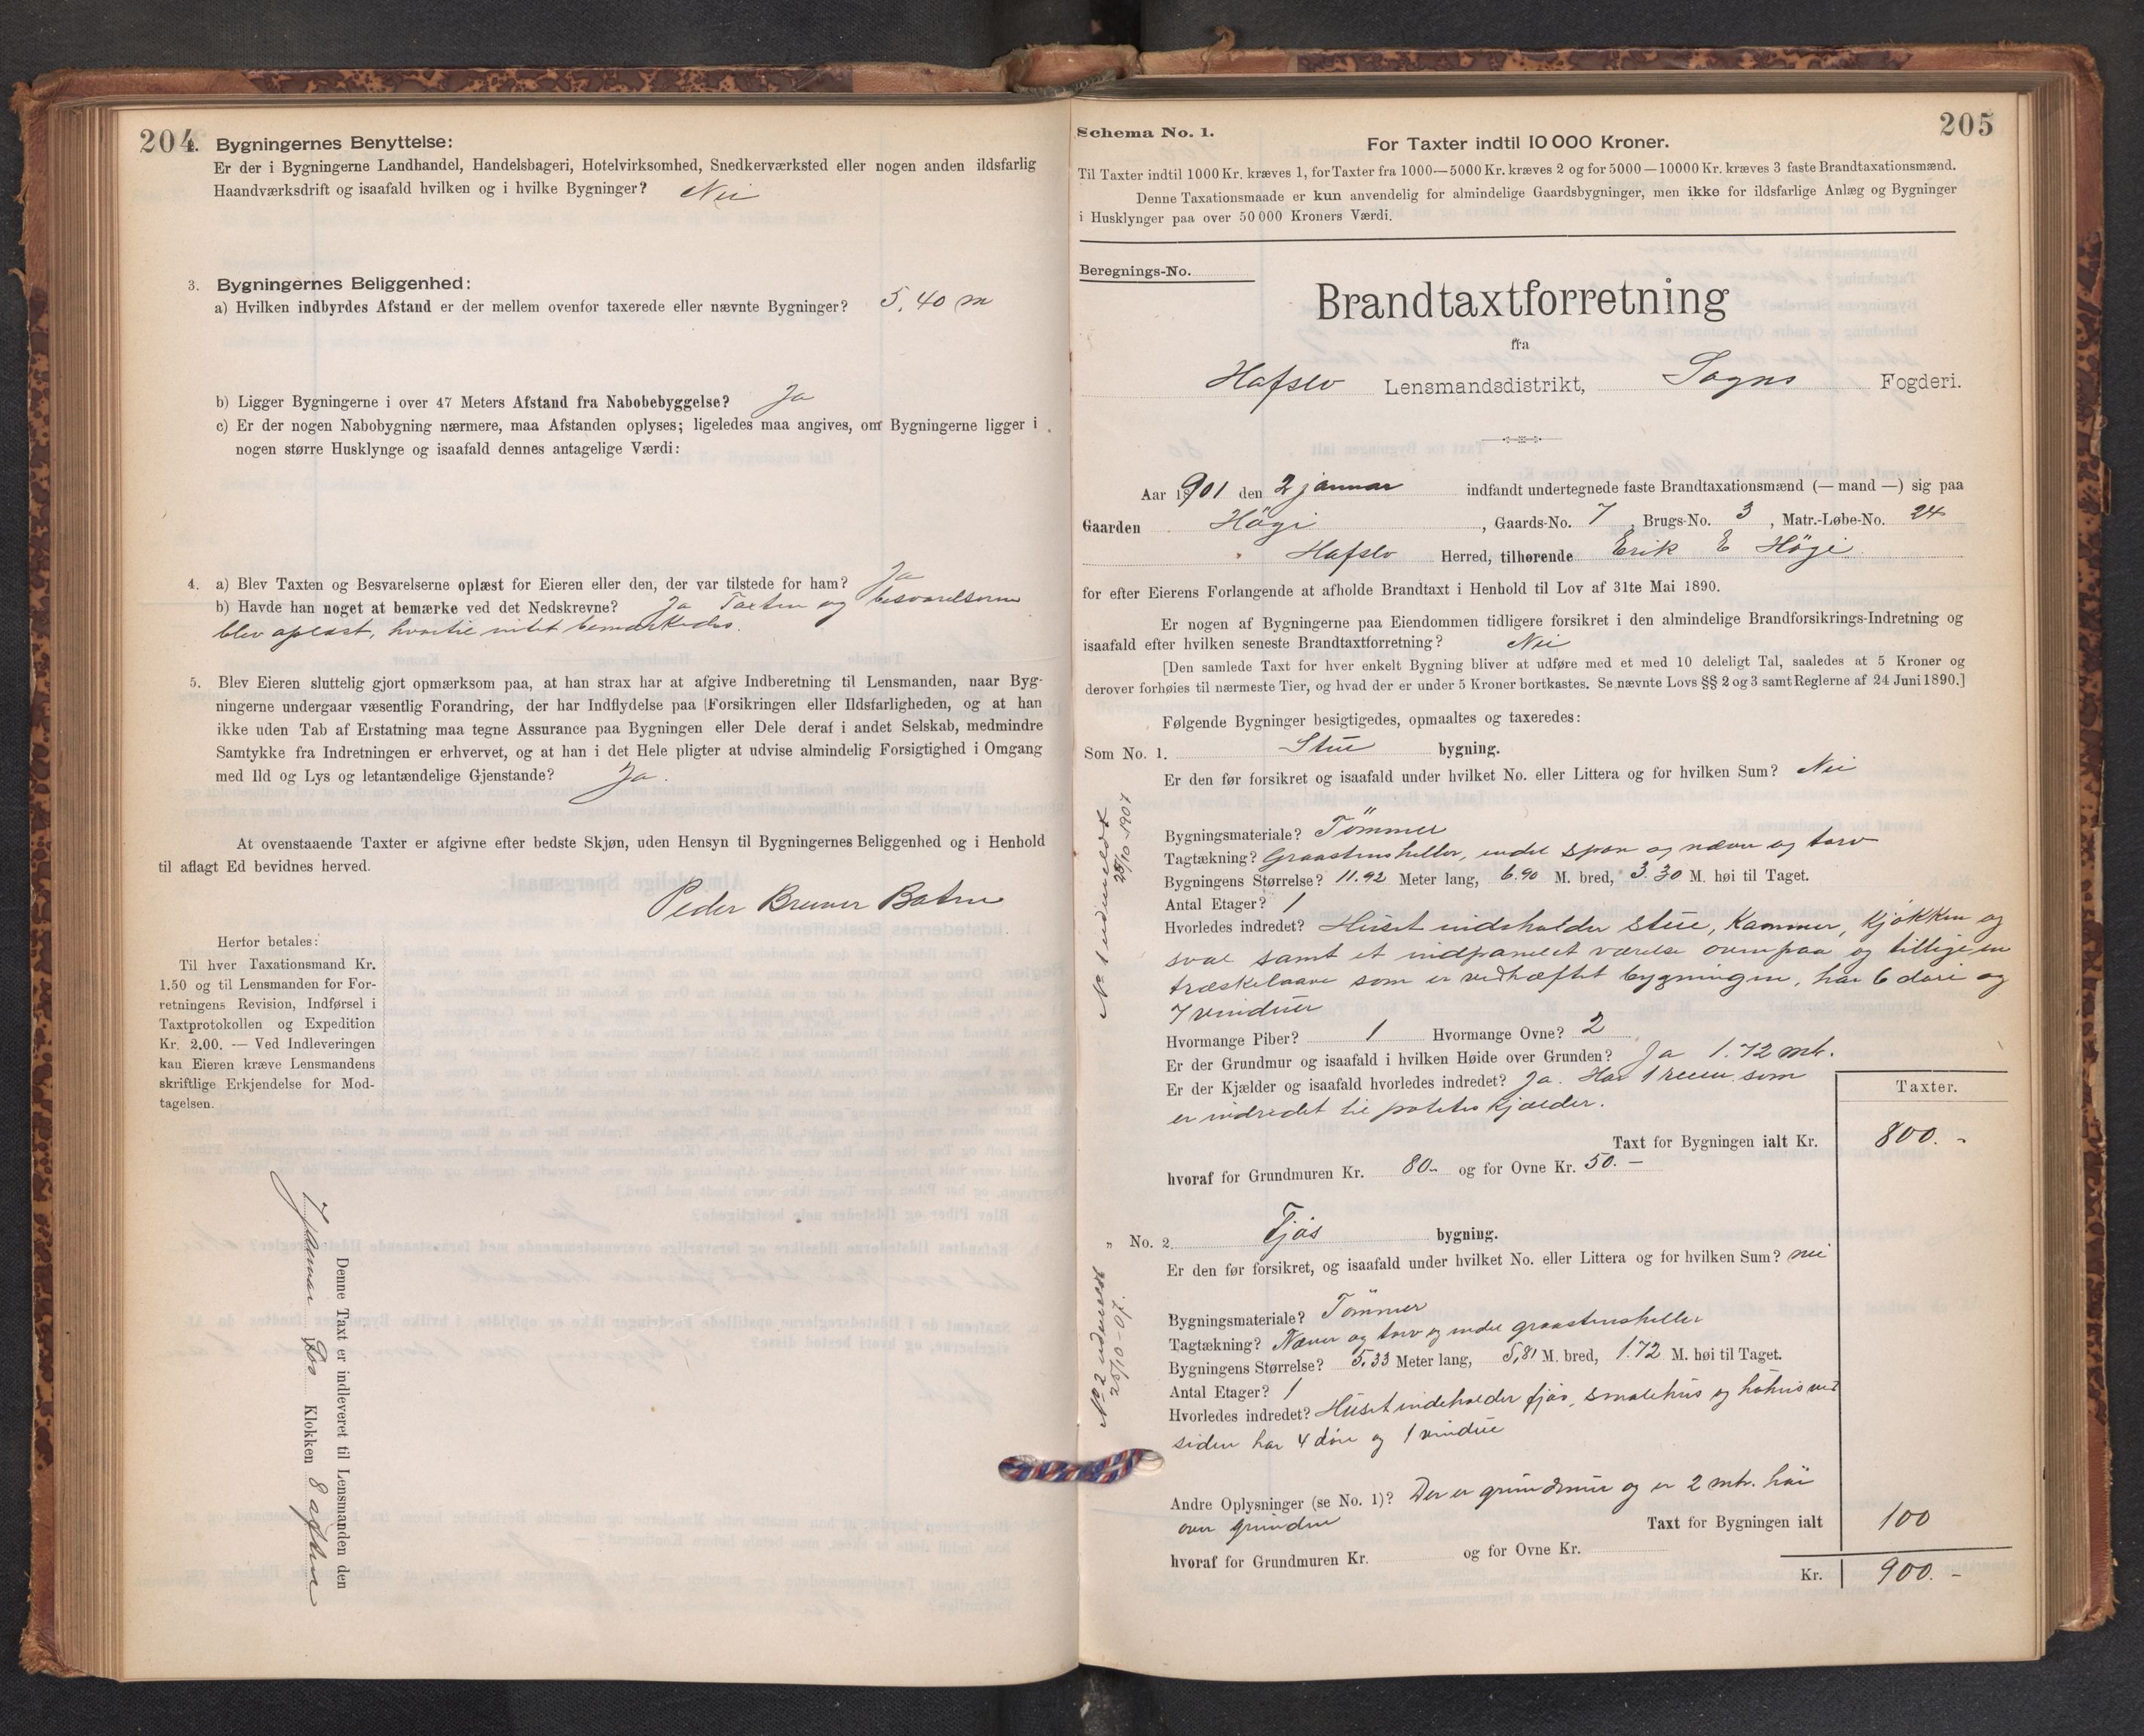 204
2. Bygningernes Benyttelse:
Er der i Bygningerne Landhandel, Handelsbageri, Hotelvirksomhed, Snedkerværksted eller nogen anden ildsfarlig
Haandværksdrift og isaafald hvilken og i hvilke Bygninger? Nei
3. Bygningernes Beliggenhed:
a) Hvilken indbyrdes Afstand er der mellem ovenfor taxerede eller nævnte Bygninger? 5,40 m
b) Ligger Bygningerne i over 47 Meters Afstand fra Nabobebyggelse? Ja
c) Er der nogen Nabobygning nærmere, maa Afstanden oplyses; ligeledes maa angives, om Bygningerne ligger i
nogen større Husklynge og isaafald dennes antagelige Værdi:
4. a) Blev Taxten og Besvarelserne oplæst for Eieren eller den, der var tilstede for ham? Ja
b) Havde han noget at bemærke ved det Nedskrevne? Ja Taxten og besvarelserne
blev oplæst, hvortil intet bemærkedes.
5. Blev Eieren sluttelig gjort opmærksom paa, at han strax har at afgive Indberetning til Lensmanden, naar Byg-
ningerne undergaar væsentlig Forandring, der har Indflydelse paa Forsikringen eller Ildsfarligheden, og at han
ikke uden Tab af Erstatning maa tegne Assurance paa Bygningen eller Dele deraf i andet Selskab, medmindre
Samtykke fra Indretningen er erhvervet, og at han i det Hele pligter at udvise almindelig Forsigtighed i Omgang
med Ild og Lys og letantændelige Gjenstande? Ja.
At ovenstaaende Taxter er afgivne efter bedste Skjøn, uden Hensyn til Bygningernes Beliggenhed og i Henhold
til aflagt Ed bevidnes herved.
Peder Bremer
Herfor betales:
Til hver Taxationsmand Kr.
1.50 og til Lensmanden for For-
retningens Revision, Indførsel i
Taxtprotokollen og Expedition
Kr. 2.00. — Ved Indleveringen
kan Eieren kræve Lensmandens
skriftlige Erkjendelse for Mod-
tagelsen.
Denne Taxt er indleveret til Lensmanden den
7 Januar Klokken 8 aften
205
Schema No. 1.
For Taxter indtil 10 000 Kroner.
Til Taxter indtil 1000 Kr. kræves 1, for Taxter fra 1000—5000 Kr. kræves 2 og for 5000—10000 Kr. kræves 3 faste Brandtaxationsmænd.
Denne Taxationsmaade er kun anvendelig for almindelige Gaardsbygninger, men ikke for ildsfarlige Anlæg og Bygninger
i Husklynger paa over 50 000 Kroners Værdi.
Beregnings-No.
Brandtaxtforretning
fra
Hafslo Lensmandsdistrikt, Sogns Fogderi.
Aar 1901 den 2 januar indfandt undertegnede faste Brandtaxationsmænd (— mand —) sig paa
Gaarden Högi, Gaards-No. 7, Brugs-No. 3, Matr.-Løbe-No. 24
Hafslo Herred, tilhørende Erik E Högi
for efter Eierens Forlangende at afholde Brandtaxt i Henhold til Lov af 31te Mai 1890.
Er nogen af Bygningerne paa Eiendommen tidligere forsikret i den almindelige Brandforsikrings-Indretning og
isaafald efter hvilken seneste Brandtaxtforretning? Nei
[Den samlede Taxt for hver enkelt Bygning bliver at udføre med et med 10 deleligt Tal, saaledes at 5 Kroner og
derover forhøies til nærmeste Tier, og hvad der er under 5 Kroner bortkastes. Se nævnte Lovs §§ 2 og 3 samt Reglerne af 24 Juni 1890.]
Følgende Bygninger besigtigedes, opmaaltes og taxeredes:
Som No. 1. Stue bygning.
Er den før forsikret og isaafald under hvilket No. eller Littera og for hvilken Sum? Nei
Bygningsmateriale? Tömmer
Tagtækning? Graastensheller, endel spon og næver og torv
Bygningens Størrelse? 11.92 Meter lang, 6.90 M. bred, 3.30 M. høi til Taget.
Antal Etager? 1
Hvorledes indredet? Huset indeholder stue, Kammer, Kjøkken og
sval samt et indpanelet værelse ovenpaa og tillige en
træskelaave som er vedhæftet bygningen, har 6 döre og
7 vinduer
Hvormange Piber? 1 Hvormange Ovne? 2
Er der Grundmur og isaafald i hvilken Høide over Grunden? Ja 1.72 mtr.
Er der Kjælder og isaafald hvorledes indredet? Ja. Har 1 rum som
er indredet til potetes kjælder.
Taxter.
Taxt for Bygningen ialt Kr. 800. -
hvoraf for Grundmuren Kr. 80.- og for Ovne Kr. 50. —
No 1 udmeldt
28/10-1907
„ No. 2. Fjös bygning.
Er den før forsikret, og isaafald under hvilket No. eller Littera og for hvilken Sum? nei
Bygningsmateriale? Tömmer
Tagtækning? Næver og torv og endel graastensheller
Bygningens Størrelse? 5,33 Meter lang, 5,81 M. bred, 1.72 M. høi til Taget.
Antal Etager? 1
Hvorledes indredet? Huset indeholder fjös, smalehus og höhus ved
siden har 4 döre og 1 vindue
Andre Oplysninger (se No. 1)? Der er grundmur og er 2 mtr. höi
over grunden
Taxt for Bygningen ialt 100
hvoraf for Grundmuren Kr. og for Ovne Kr.
Kr. 900. -
No 2 udmeldt
28/10-07.